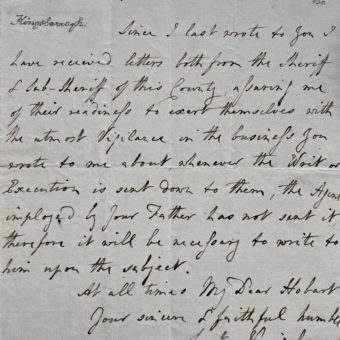 Kingsborough.
Since I last wrote to you I
have received letters both from the Sheriff
& Sub-Sheriff of this County, assuring me
of their readiness to exert themselves with
the utmost Vigilance in the business you
wrote to me about whenever the Writ or
Execution is sent down to them, the Agent
imployed by your Father has not sent it,
therefore it will be necessary to write to
him upon the subject.
At all times My Dear Hobart
Your sincere & faithful humble